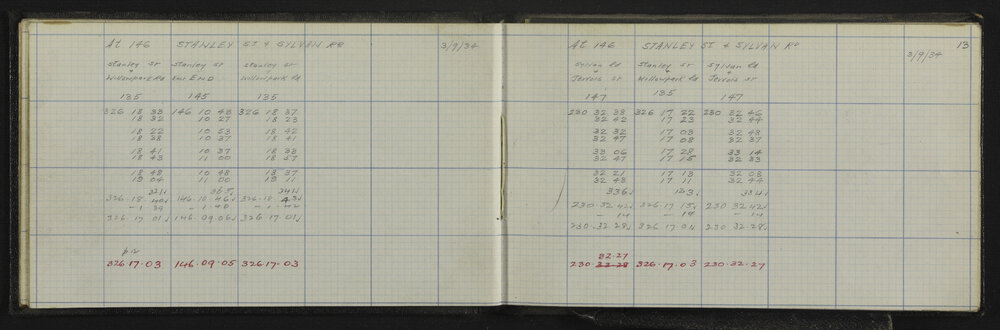 At 146 STANLEY ST & SYLVAN RD 3/9/34
Stanley St Stanley St Stanley St
Willowpark Rd East END Willowpark Rd
135 145 135
326 18 33 146 10 48 326 18 37
18 32 10 27 18 23
18 22 10 53 18 42
18 38 10 37 18 41
18 41 10 37 18 38
18 43 11 00 18 57
18 48 10 48 18 37
19 04 11 00 19 11
326.18 146.10.46 326.18
326.17.01 146.09.06 326.17.01
326.17.03 146.09.05 326.17.03
13
At 146 STANLEY ST & SYLVAN RD 3/9/34
Sylvan Rd Stanley St Sylvan Rd
Jervois St Willowpark Rd Jervois St
147 135 147
230 32 38 326 17 22 230 32 46
32 42 17 23 32 44
32 32 17 03 32 48
32 47 17 08 32 37
33 06 17 28 33 14
32 47 17 15 32 33
32 21 17 13 32 08
32 48 17 11 32 44
336 123 334
230.32.42 326.17.15 230.32.42
- 14 - 14 - 14
230.32.28 326.17.01 230.32.28
32.27
230.32.28 326.17.03 230.32.27